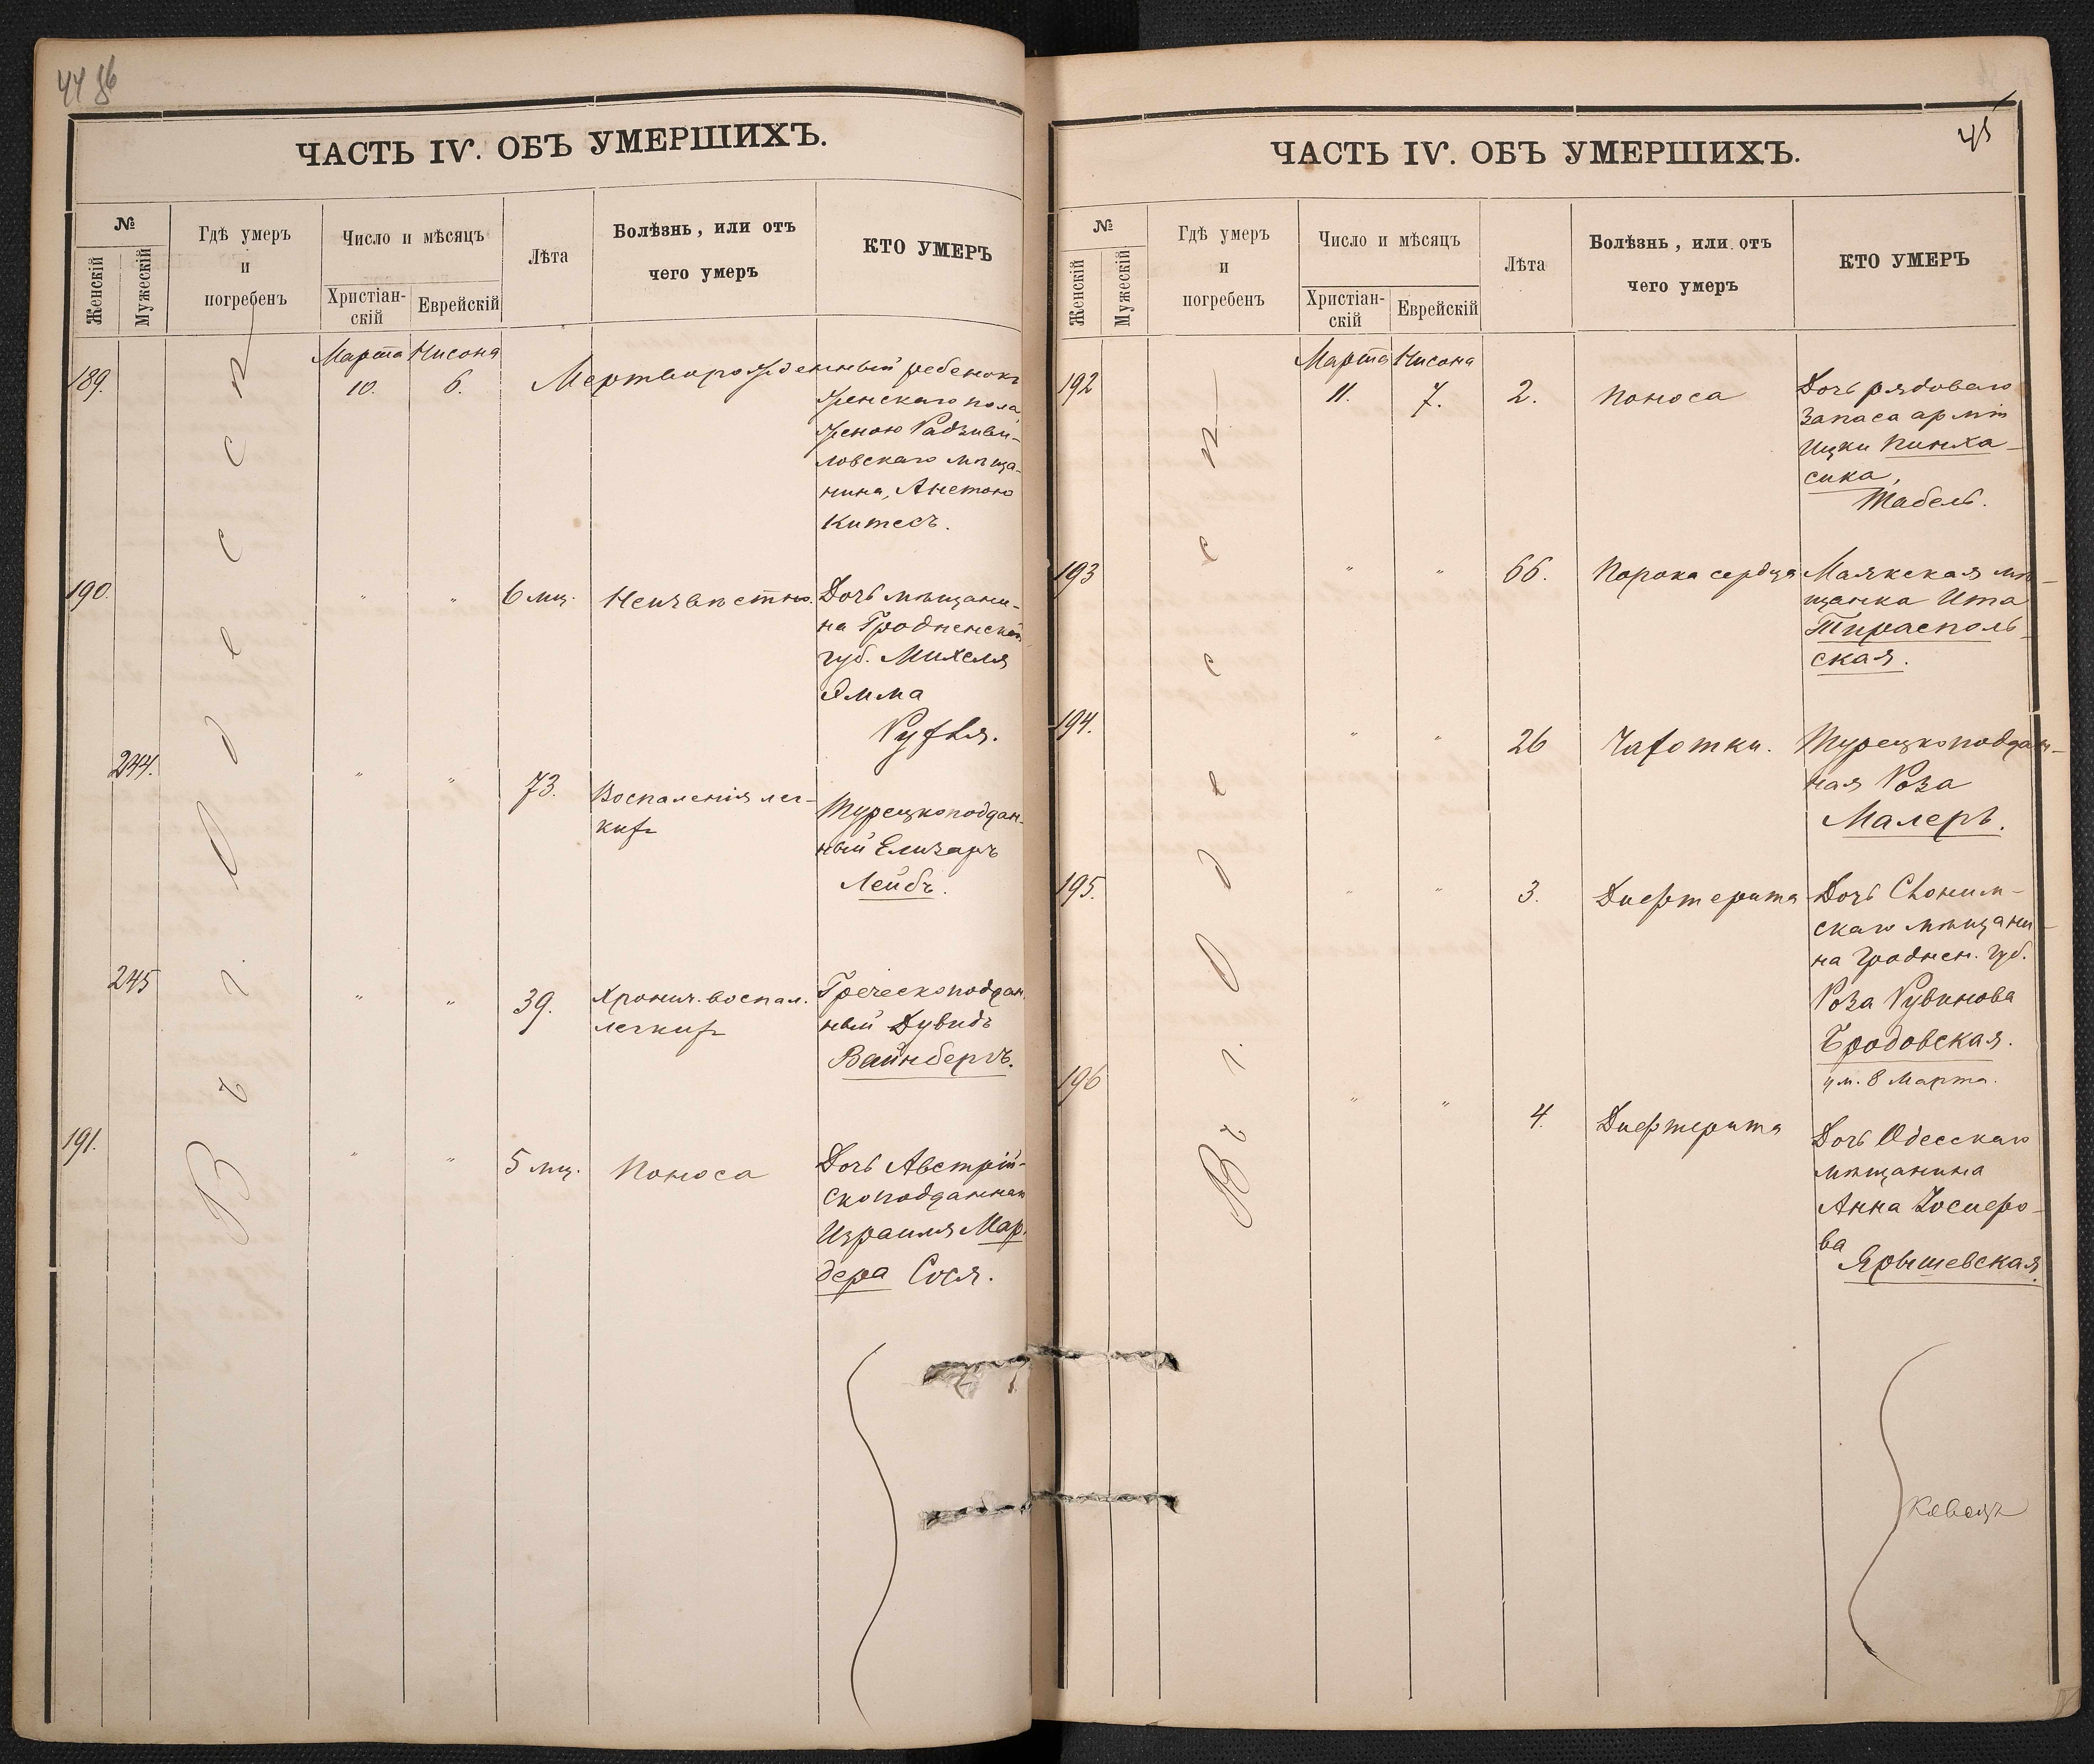 44 86
ЧАСТЬ IV. ОБЪ УМЕРШИХЪ.
№
Женскій
Мужескій
Гдѣ умеръ
и
погребенъ
Число и мѣсяцъ
Христіан-
скій
Еврейскій
Лѣта
Болѣзнь, или отъ
чего умеръ
КТО УМЕРЪ
Въ г. Одессѣ
189.
Марта Нисона
10. 6.
Мертворожденный ребенокъ
женскаго пола
женою Радзиви-
ловскаго мѣща-
нина, Анетою
Китесъ.
190. " " 6 мц. Неизвѣстно.
Дочь мѣщани-
на Гродненской
губ. Михеля
Амма
Руфля.
244. " " 73.
Воспаленія лег-
кихъ
Турецкоподдан-
ный Елизаръ
Лейбъ.
245 " " 39.
Хронич. воспал.
легкихъ
Греческоподдан
ный Дувидъ
Вайнбергъ.
191. " " 5 мц. Поноса
Дочь Австрій-
скоподданнаго
Израиля Мар-
дера Сося.
45
ЧАСТЬ IV. ОБЪ УМЕРШИХЪ.
№
Женскій
Мужескій
Гдѣ умеръ
и
погребенъ
Число и мѣсяцъ
Христіан-
скій
Еврейскій
Лѣта
Болѣзнь, или отъ
чего умеръ
КТО УМЕРЪ
Въ г. Одессѣ
Марта Нисона
192 11. 7. 2. Поноса
Дочь рядоваго
запаса арміи
Ицки Пинха-
сика,
Табель.
193 " " 66. Порока сердца
Маякская мѣ-
щанка Ита
Тирасполь-
ская.
194. " " 26 Чахотки.
Турецкоподдан-
ная Роза
Малеръ.
195. " " 3. Дифтерита
Дочь Слоним-
скаго мѣщани-
на Гроднен. губ.
Роза Рувинова
Бродовская.
ум. 8 Марта.
196 " " 4. Дифтерита
Дочь Одесскаго
мѣщанина
Анна Іосифо-
ва
Ярышевская.